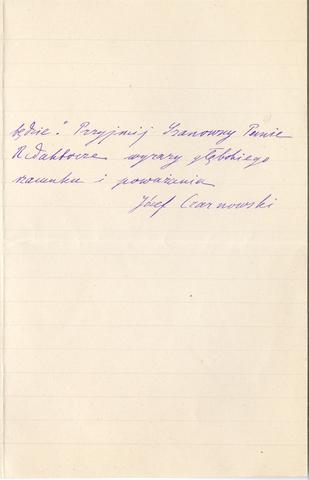 będzie". Przyjmij Szanowny Panie
Redaktorze wyrazy głębokiego
szacunku i poważania
Józef Czarnowski